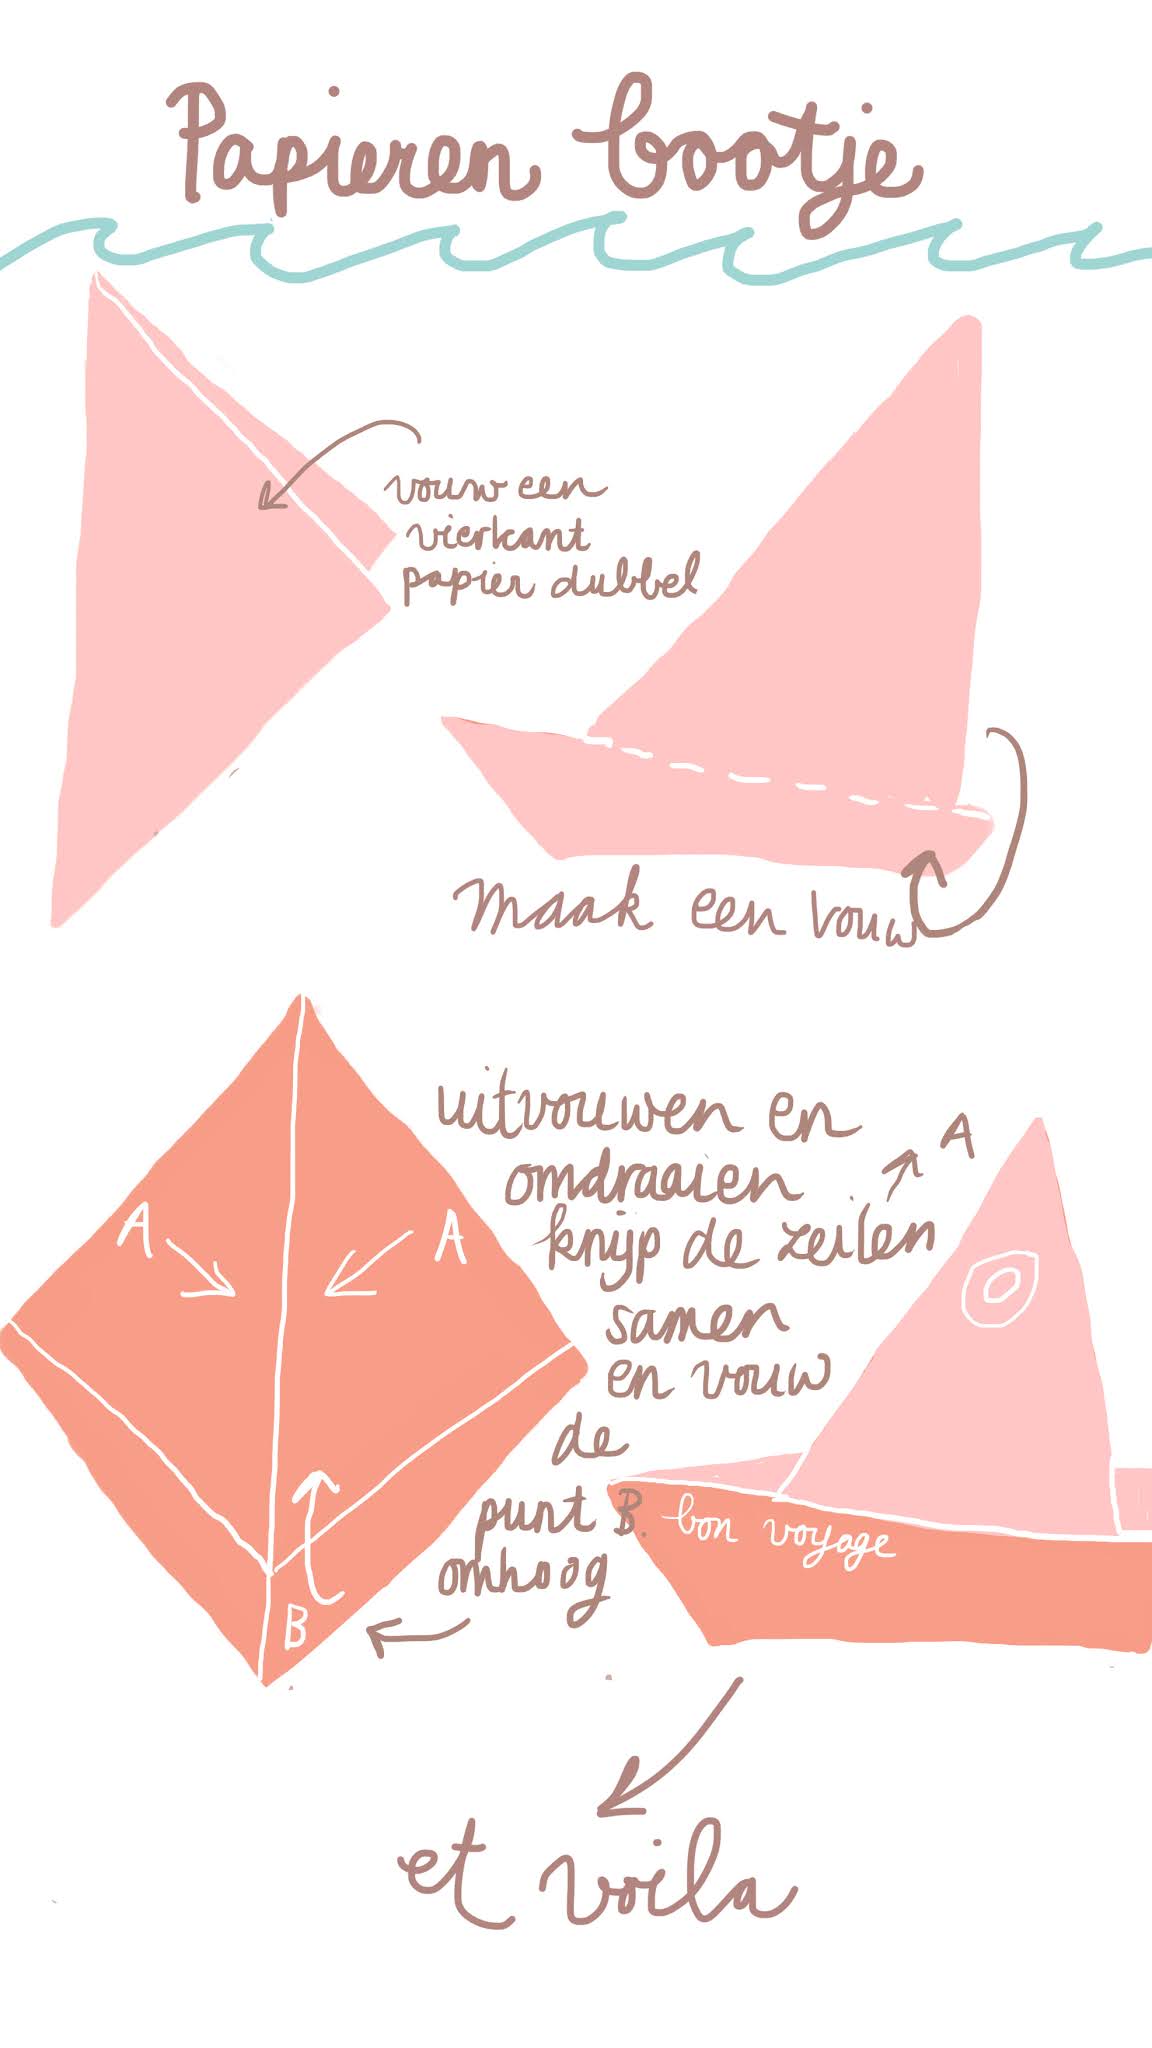 Papieren bootje
vouw een
vierkant
papier dubbel
maak een vouw
A
A
B
uitvouwen en
omdraaien
A
knijp de zeilen
samen
en vouw
de
punt B.
omhoog
bon voyage
et voila